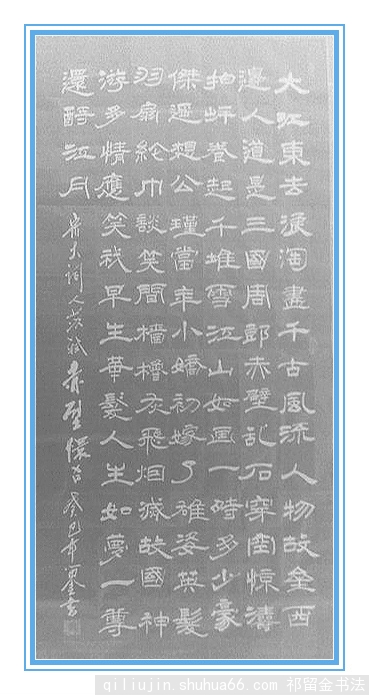 大江東去浪淘盡千古風流人物故垒西
邊人道是三國周郎赤壁乱石穿空惊濤
拍岸卷起千堆雪江山如画一時多少豪
傑遥想公瑾當年小嬌初嫁了雄姿英髮
羽扇綸巾談笑間檣櫓灰飛烟滅故國神
游多情應笑我早生華髮人生如夢一尊
還酹江月
宋大詞人蘇軾赤壁懷古癸巳年留金書
qiliujin.shuhua66.com 祁留金书法